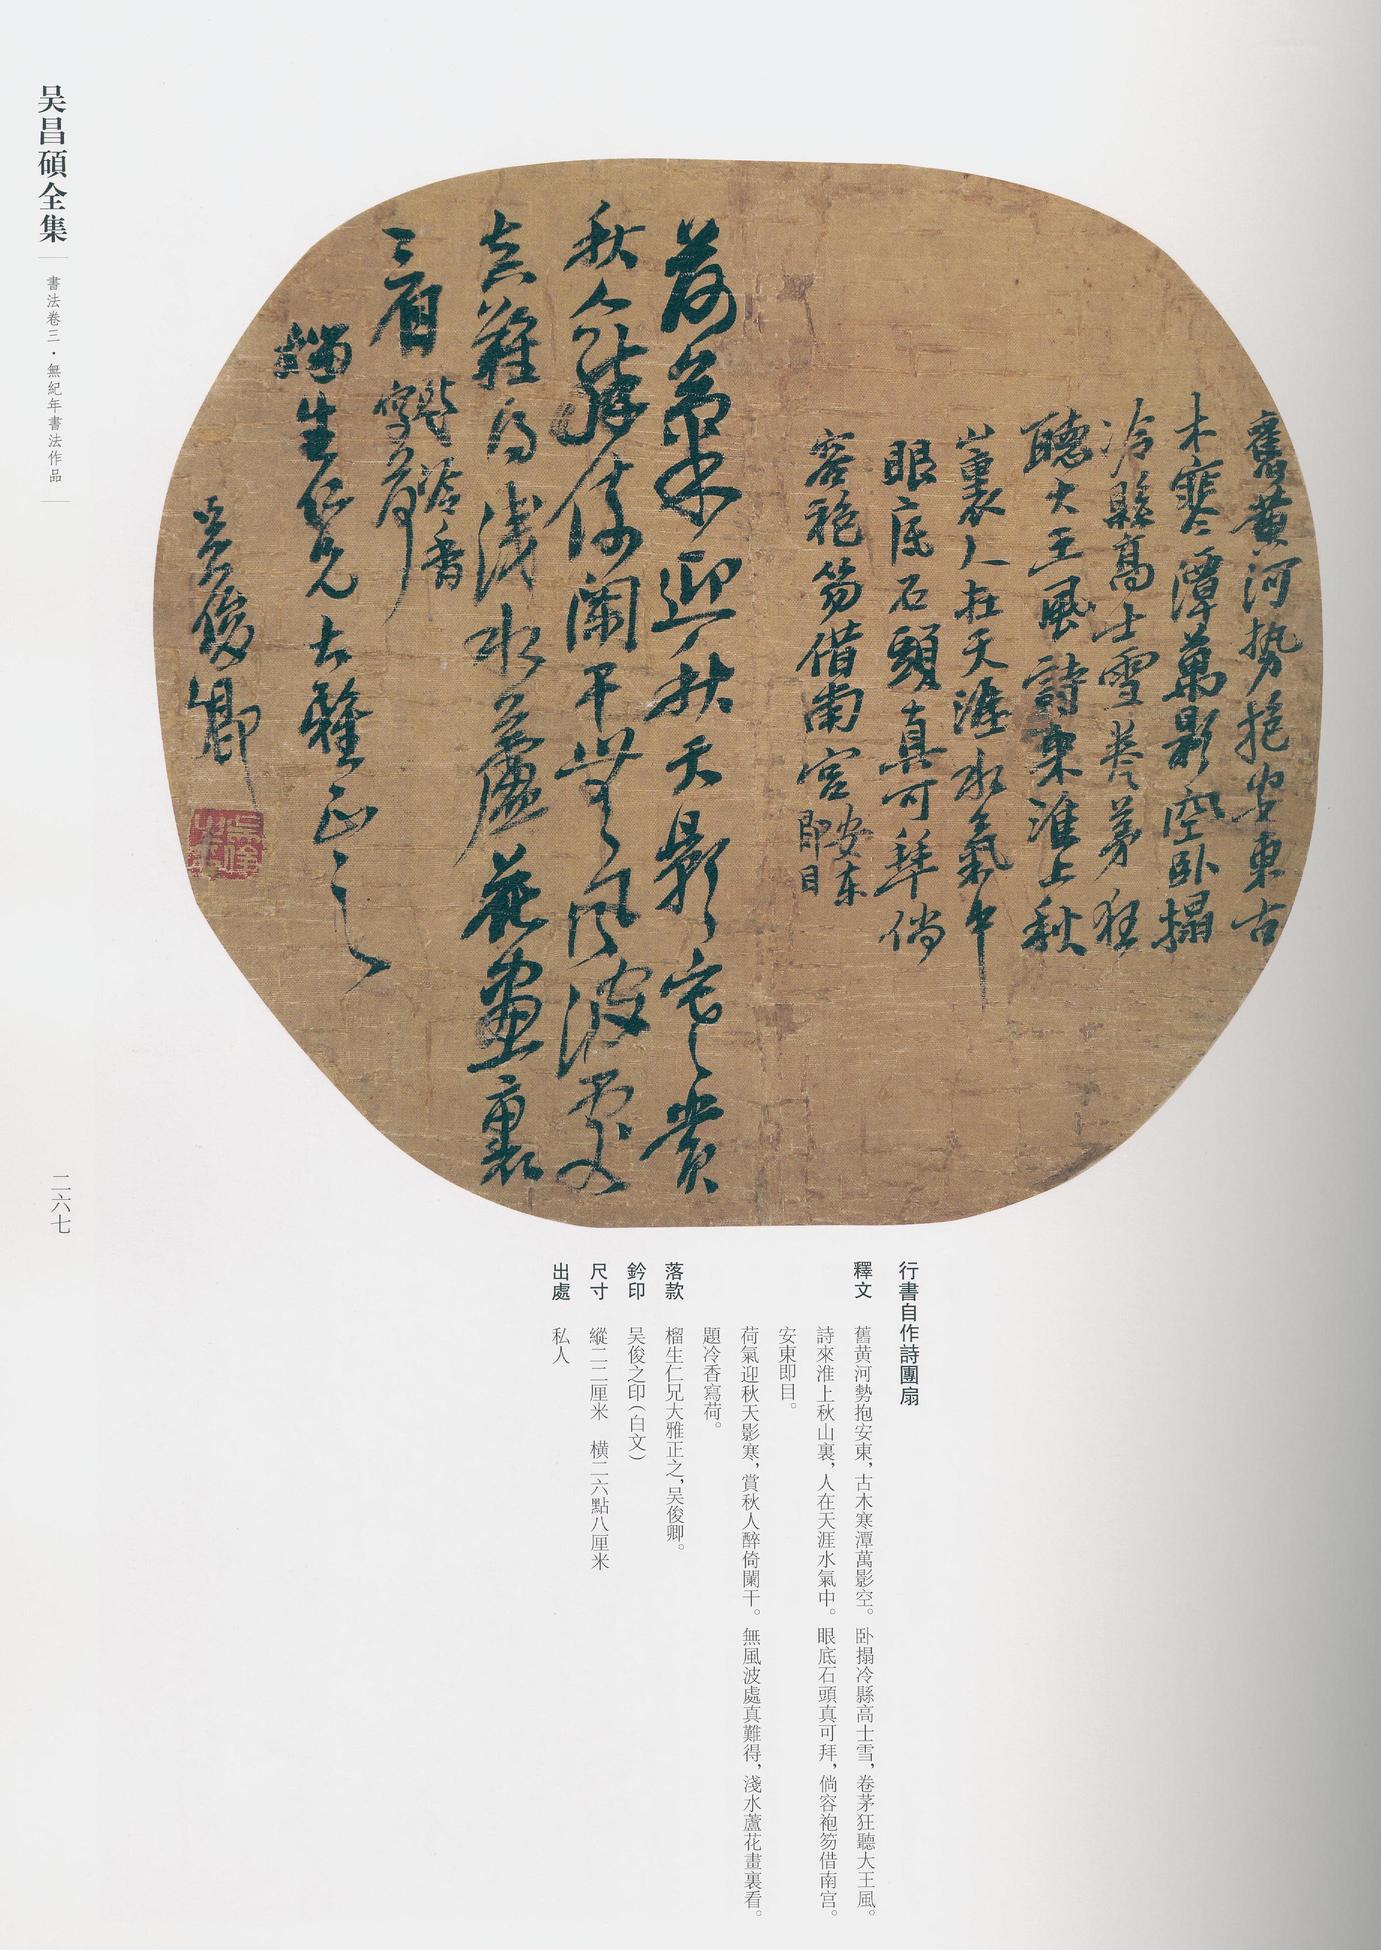 舊黄河勢抱安東古
木寒潭萬影空卧搨
冷縣高士雪卷茅狂
聽大王風詩來淮上秋
山裏人在天涯水氣中
眼底石頭真可拜倘
容袍笏借南宫安东
即目
荷氣迎秋天影寒賞
秋人醉倚闌干無風波處
真難得淺水蘆花畫裏
看題冷香
寫荷
榴生仁兄大雅正之
吴俊卿
吴俊之印
行書自作詩團扇
釋文 舊黄河勢抱安東，古木寒潭萬影空。卧搨冷縣高士雪，卷茅狂聽大王風。
詩來淮上秋山裏，人在天涯水氣中。眼底石頭真可拜，倘容袍笏借南宫。
安東即目。
荷氣迎秋天影寒，賞秋人醉倚闌干。無風波處真難得，淺水蘆花畫裏看。
題冷香寫荷。
落款 榴生仁兄大雅正之，吴俊卿。
鈐印 吴俊之印（白文）
尺寸 縱二二厘米 横二六點八厘米
出處 私人
吴昌碩全集
書法卷三·無紀年書法作品
二六七